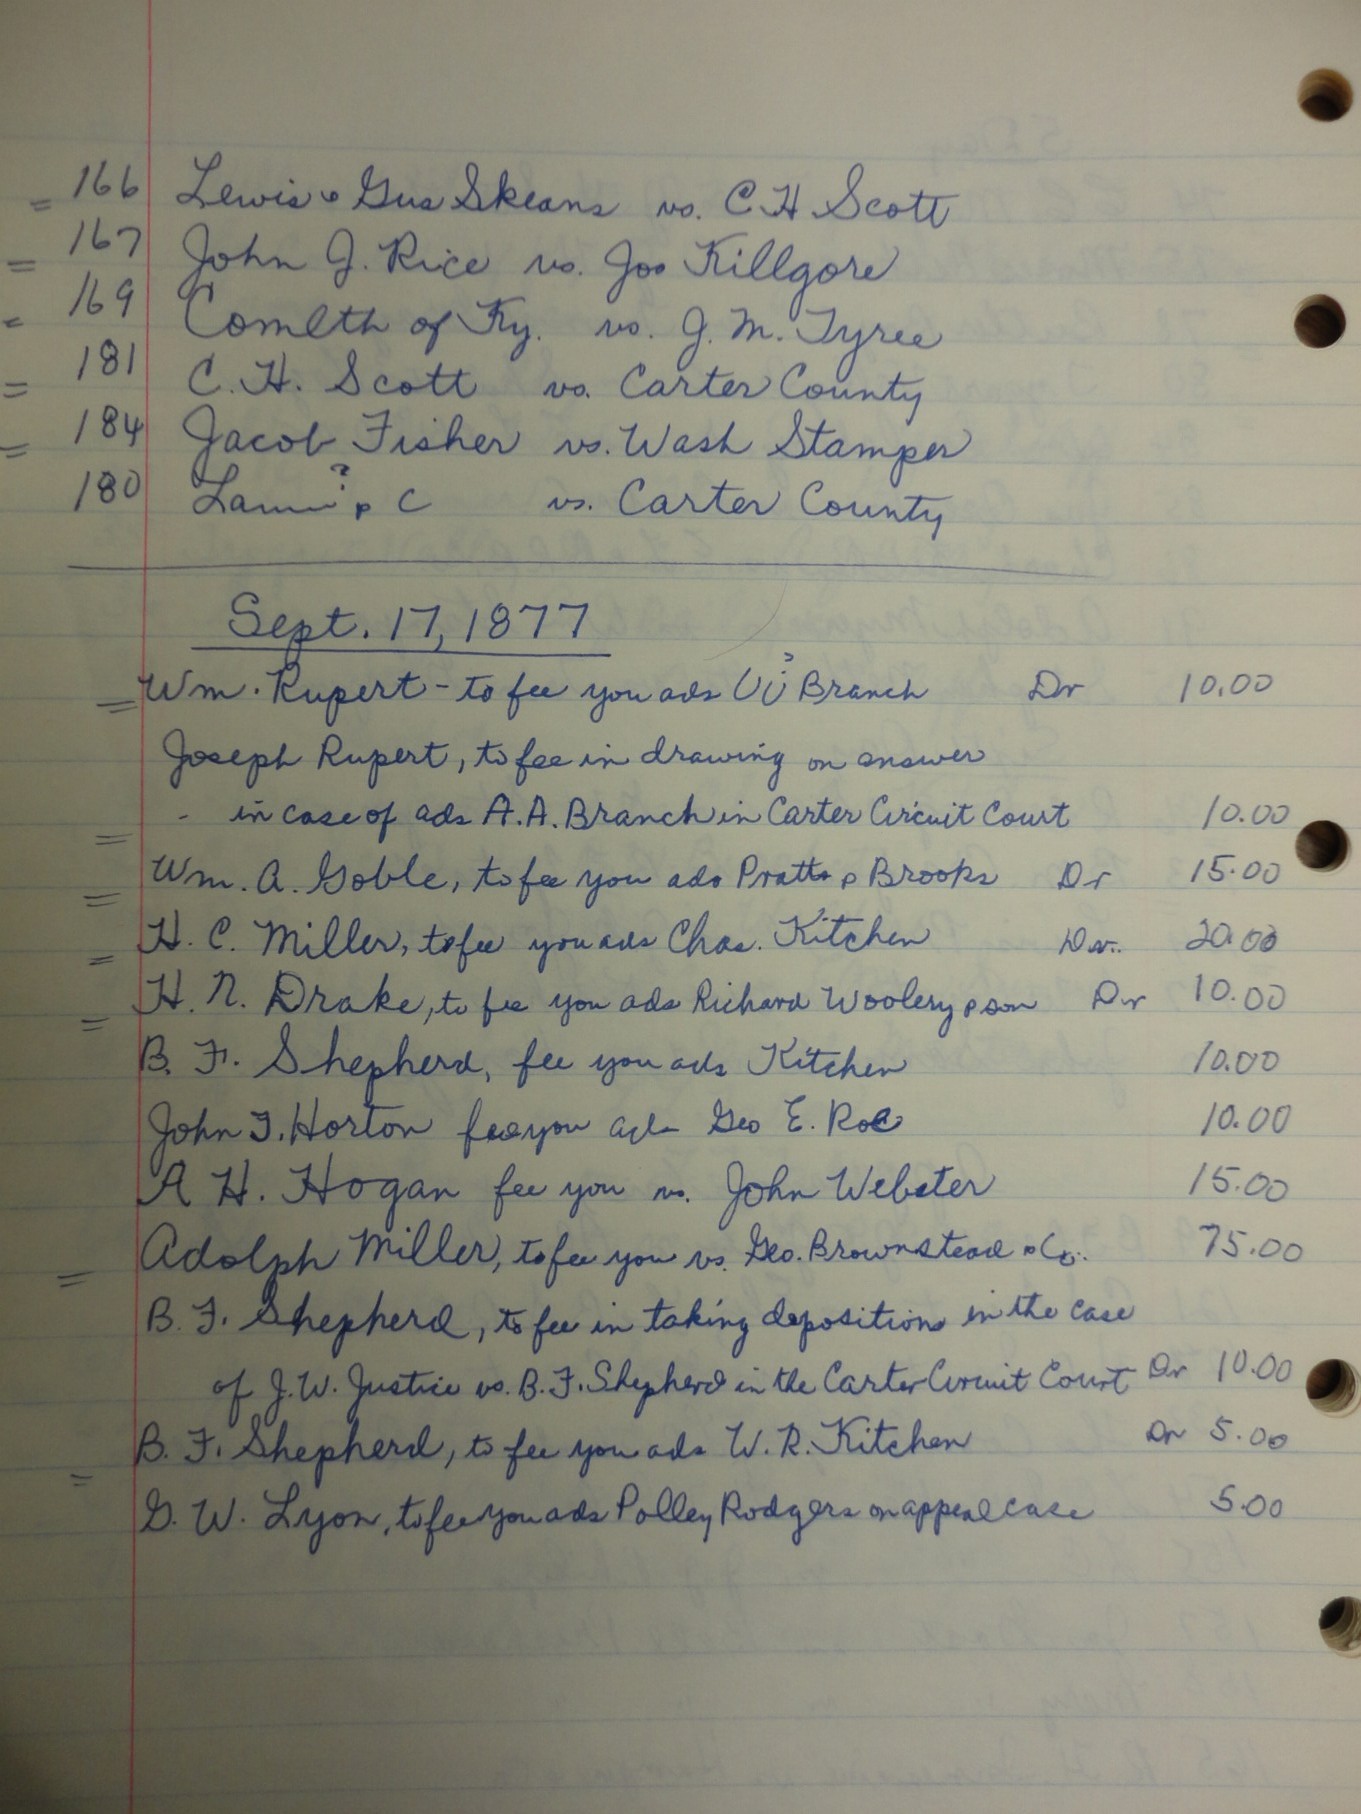 = 166 Lewis & Gus Skeans vs. C. H. Scott
= 167 John J. Rice vs. Jos Killgore
= 169 Comlth of Ky. vs. J. M. Tyree
= 181 C. H. Scott vs. Carter County
= 184 Jacob Fisher vs. Wash Stamper
180 ? & C vs. Carter County
Sept. 17, 1877
= Wm. Rupert - to fee you ads ? Branch Dr 10.00
Joseph Rupert, to fee in drawing on answer
= - in case of ads A. A. Branch in Carter Circuit Court 10.00
= Wm. A. Goble, to fee you ads Pratts & Brooks Dr 15.00
= H. C. Miller, to fee you ads Chas. Kitchen Dr. 20.00
= H. N. Drake, to fee you ads Richard Woolery & son Dr 10.00
B. F. Shepherd, fee you ads Kitchen 10.00
John F. Horton fee you ads Geo E. Roe 10.00
A H. Hogan fee you vs. John Webster 15.00
= Adolph Miller, to fee you vs. Geo. Brownstead & Co. 75.00
B. F. Shepherd, to fee in taking depositions in the case
of J. W. Justice vs. B. F. Shepherd in the Carter Circuit Court Dr 10.00
= B. F. Shepherd, to fee you ads W. R. Kitchen Dr 5.00
G. W. Lyon, to fee you ads Polley Rodgers on appeal case 5.00